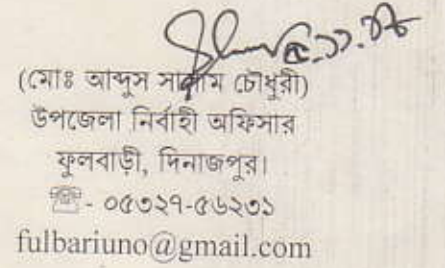 (মোঃ আব্দুস সালাম চৌধুরী)
উপজেলা নির্বাহী অফিসার
ফুলবাড়ী, দিনাজপুর।
☎- ০৫৩২৭-৫৬২৩১
fulbariuno@gmail.com